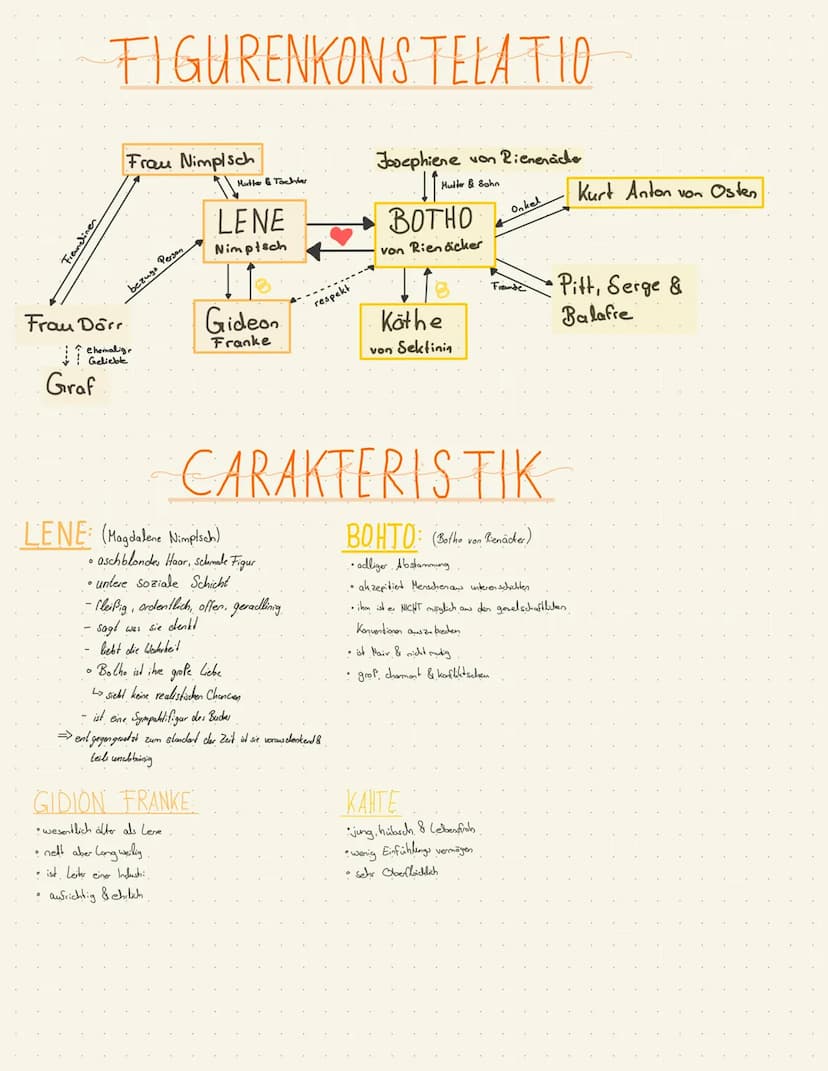 FIGURENKONSTELATIO
Frau Nimptsch
Josephiene von Rienenäcke
Mutter & Tochter
Mutter & Sohn
Kurt Anton von Osten
Onkel
LENE
Nimptsch
BOTHO
von Rienäcker
Freundinen
bezugs Person
respekt
Freunde
Pitt, Serge &
Balafre
Frau Dörr
Gideon
Franke
Käthe
von Sektinin
ehemaliger
Geliebte
Graf
CARAKTERISTIK
LENE: (Magdalene Nimptsch)
• aschblondes Haar, schmale Figur
• untere soziale Schicht
- fleißig, ordentlich, offen, geradlinig
- sagt was sie denkt
- liebt die Wahrheit
• Botho ist ihre große Liebe
↳ sieht keine realistischen Chancen
- ist eine Sympahtifigur des Buches
⇒ entgegengesetzt zum standart der Zeit ist sie vorausdenkend &
teils unabhänig
BOHTO: (Botho von Renäcker)
• adliger Abstammung
• akzeptiert Menschen aus unteren schichten
• ihm ist es NICHT möglich aus den gesellschaftlichen
Konventionen auszubrechen
• ist Naiv & nicht mutig
• groß, charmant &
GIDION FRANKE:
• wesentlich älter als Lene
• nett aber langweilig
• ist Leiter einer
• aufrichtig & ehrlich
KAHTE
• jung, hübsch & Lebensfroh
• wenig Einfühlungs vermögen
• sehr Oberflächlich